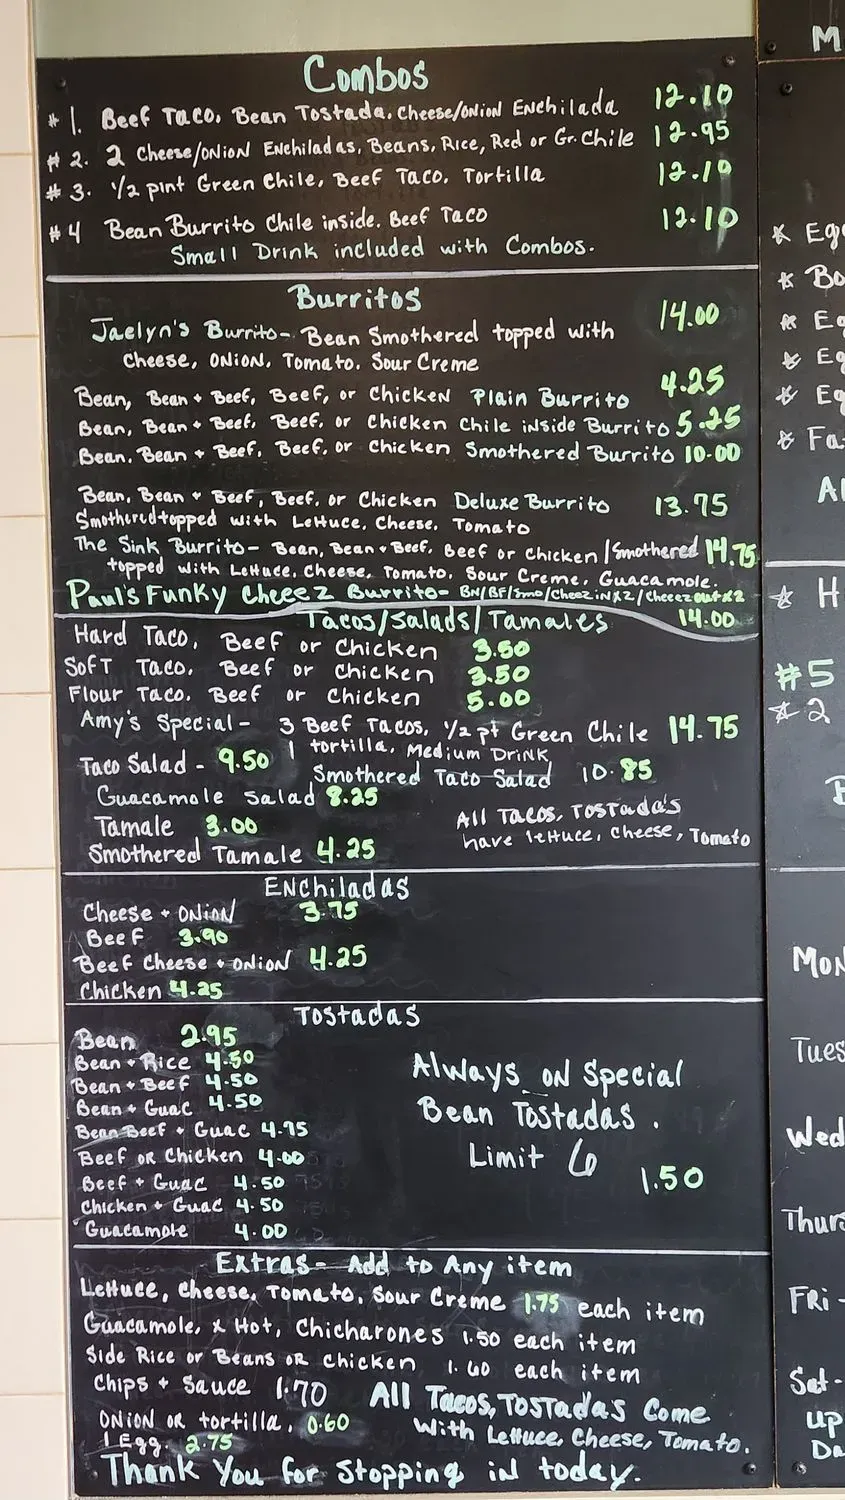 Combos
#1. Beef Taco, Bean Tostada, Cheese/Onion Enchilada 12.10
#2. 2 Cheese/Onion Enchiladas, Beans, Rice, Red or Gr. Chile 12.95
#3. 1/2 pint Green Chile, Beef Taco. Tortilla 12.10
#4 Bean Burrito Chile inside. Beef Taco 12.10
Small Drink included with Combos.
Burritos
Jaelyn's Burrito- Bean Smothered topped with 14.00
Cheese, Onion, Tomato. Sour Creme
Bean, Bean + Beef, Beef, or Chicken Plain Burrito 4.25
Bean, Bean + Beef, Beef, or Chicken Chile inside Burrito 5.25
Bean, Bean + Beef, Beef, or Chicken Smothered Burrito 10.00
Bean, Bean + Beef, Beef, or Chicken Deluxe Burrito 13.75
Smothered topped with Lettuce, Cheese, Tomato
The Sink Burrito- Bean, Bean + Beef, Beef or Chicken/Smothered 14.75
topped with Lettuce, Cheese, Tomato, Sour Creme, Guacamole.
Paul's Funky Cheeez Burrito- BN/BF/Smo/Cheez in x2/Cheeez out x2
14.00
Tacos/Salads/Tamales
Hard Taco, Beef or Chicken 3.50
Soft Taco, Beef or Chicken 3.50
Flour Taco. Beef or Chicken 5.00
Amy's Special- 3 Beef Tacos, 1/2 pt Green Chile 14.75
1 tortilla, Medium Drink
Taco Salad - 9.50
Smothered Taco Salad 10.85
Guacamole Salad 8.25
Tamale 3.00
Smothered Tamale 4.25
All Tacos, Tostada's
have lettuce, Cheese, Tomato
Enchiladas
Cheese + Onion 3.75
Beef 3.90
Beef Cheese + Onion 4.25
Chicken 4.25
Tostadas
Bean 2.95
Bean + Rice 4.50
Bean + Beef 4.50
Bean + Guac 4.50
Bean Beef + Guac 4.75
Beef or Chicken 4.00
Beef + Guac 4.50
Chicken + Guac 4.50
Guacamole 4.00
Always on Special
Bean Tostadas.
Limit 6
1.50
Extras- Add to Any item
Lettuce, Cheese, Tomato, Sour Creme 1.75 each item
Guacamole, x Hot, Chicharones 1.50 each item
Side Rice or Beans or Chicken 1.60 each item
Chips + Sauce 1.70
Onion or tortilla, 0.60
1 Egg. 2.75
All Tacos, Tostadas Come
With Lettuce, Cheese, Tomato.
Thank You for Stopping in today.
#5
2
Mon
Tues
Wed
Thurs
Fri -
Sat-
up